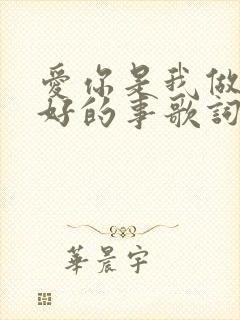 愛你是我做
好的事歌詞
華晨宇